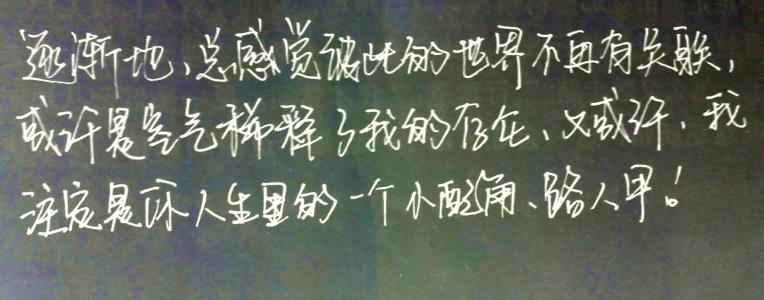 逐渐地、总感觉彼此的世界不再有关联，
或许是空气稀释了我的存在、又或许、我
注定是你人生里的一个小配角、路人甲！